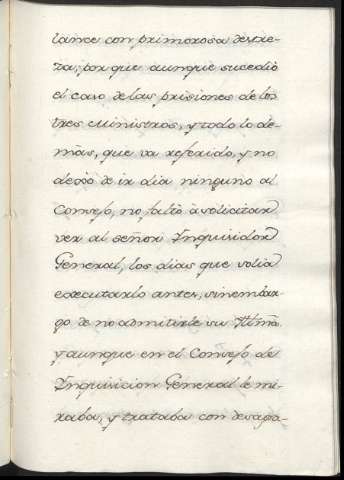 lance con primorosa destre-
za; por que aunque sucedió
el caso de las prisiones de los
tres Ministros, y todo lo de-
más, que va referido, y no
dexó de ir dia ninguno al
Consejo, no faltó à solicitar
ver al señor Inquisidor
General, los dias que solia
executarlo antes, sin embar-
go de no admitirle su Illma.
y aunque en el Consejo de
Inquisicion General le mi-
raba, y trataba con desagra-